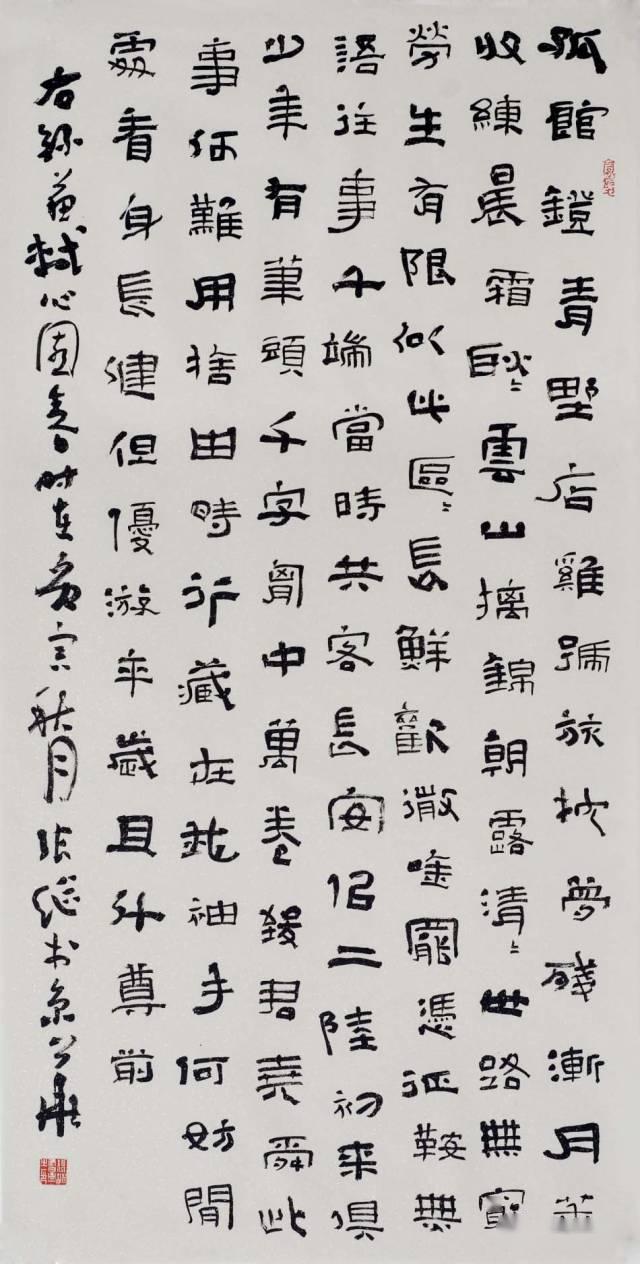 孤館鐙青野店雞號旅枕夢殘漸月華
收練晨霜耿〻雲山摛錦朝露清〻世路無窮
勞生有限似此區〻長鮮歡微唫罷憑征鞍無
語往事千端當時共客長安佀二陸初來俱
少年有筆頭千字胷中萬卷致君堯舜此
事何難用捨由時行藏在我袖手何妨閒
處看身長健但優游卒歲且鬥尊前
右錄蘇軾沁園春时在庚寅秋月张继书京